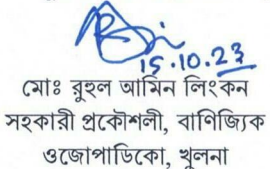 15.10.23
মোঃ রুহুল আমিন লিংকন
সহকারী প্রকৌশলী, বাণিজ্যিক
ওজোপাডিকো, খুলনা